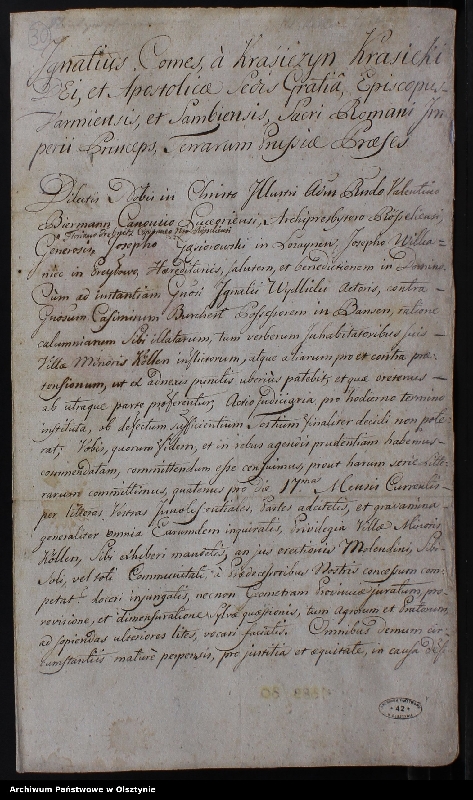 Ignatius Comes à Krasiczyn Krasicki
DEI, et Apostolicæ Sedis Gratiâ, Episcopus
Varmiensis, et Sambiensis, Sacri Romani Im-
perii Princeps, Terrarum Prussiæ Præses
Dilectis Nobis in Christo Illustri Adm Rndo Valentino
Biermann Canonico Archipresbytero
Generosis, Josepho Gąsiorowski in Josepho
in Hæreditariis, Salutem, et benedictionem in Domino
Cùm ad instantiam Gnosi Ignatii Actoris, contra
Gnosum Casimirum Burchert Possessorem in Bansen, ratione
calumniarum sibi illatarum, tum verberum Inhabitatoribus suis
Villæ Minoris Köllen inflictorum, atque aliarum pro et contra præ-
tensionum, ut ex adnexis punctis uberius patebit, et quæ oretenus
ab utraque parte proferentur, Actio judiciaria pro hodierno termino
instituta, ob defectum sufficientium Testium finaliter decidi non pote
rat; Vobis, quorum fidem, et in rebus agendis prudentiam habemus
commendatam, committendum esse censuimus, prout harum serie Litte
rarum committimus, quatenus pro Die 17ma Mensis Currentis
per litteras Vestras Partes adcitetis, et gravamina
generaliter omnia Earumdem inquiratis, Privilegia Villæ Minoris
Köllen, Sibi exhiberi mandetis, an jus erectionis Molendini, Sibi
Soli, vel toti Communitati à Prædecessoribus Nostris concessum com
petat? doceri injungatis, necnon Geometram Provinciæ juratum pro
revisione, et dimensuratione sylvæ quæstionis, tum agrorum et pratorum
ad sopiendas ulteriores lites, vocari faciatis. Omnibus demum cir
cumstantiis maturè perpensis, pro justitia et æquitate, in causa
42
Archiwum Państwowe w Olsztynie